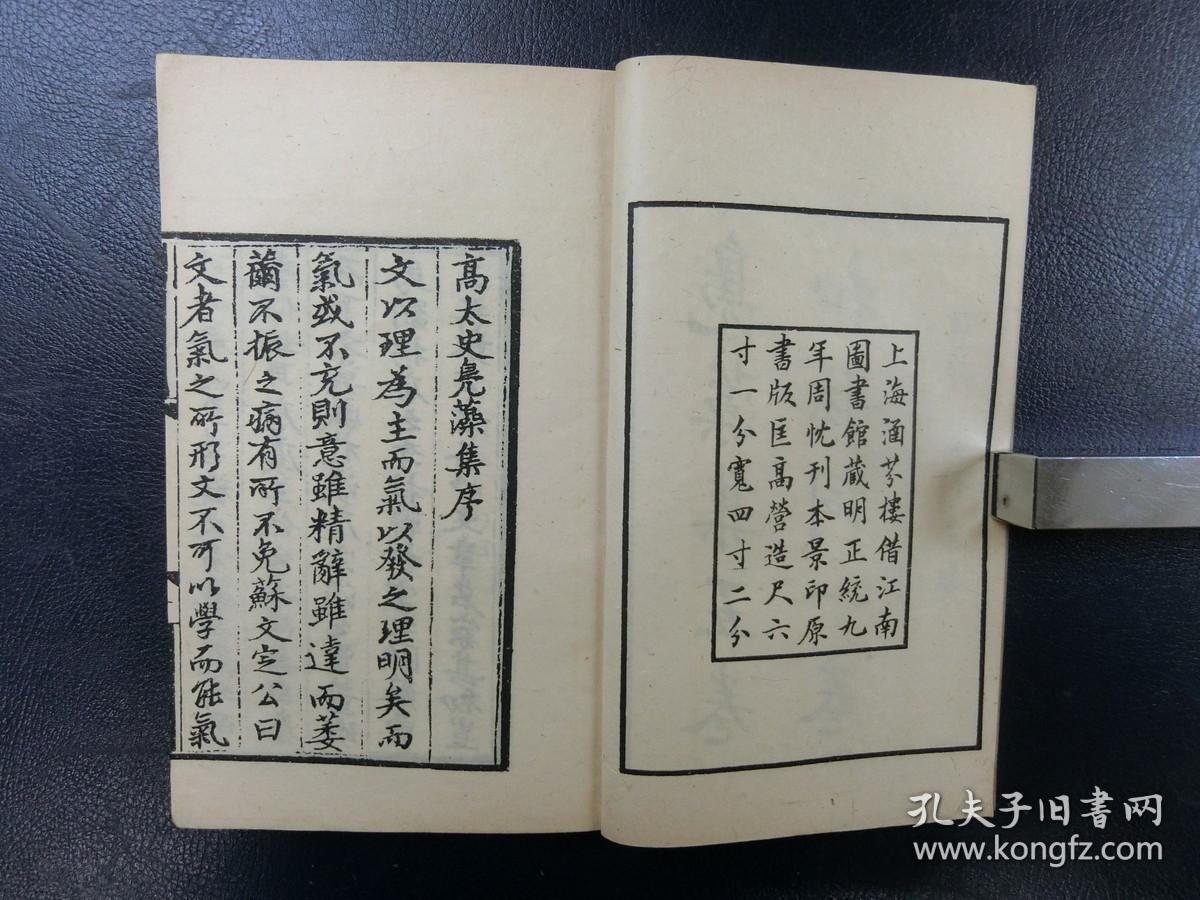 上海涵芬樓借江南
圖書館藏明正統九
年周忱刊本景印原
書版匡高營造尺六
寸一分寬四寸二分
高太史鳧藻集序
文以理為主而氣以發之理明矣而
氣或不充則意雖精辭雖達而萎
薾不振之病有所不免蘇文定公曰
文者氣之所形文不可以學而能氣
孔夫子旧书网
www.kongfz.com